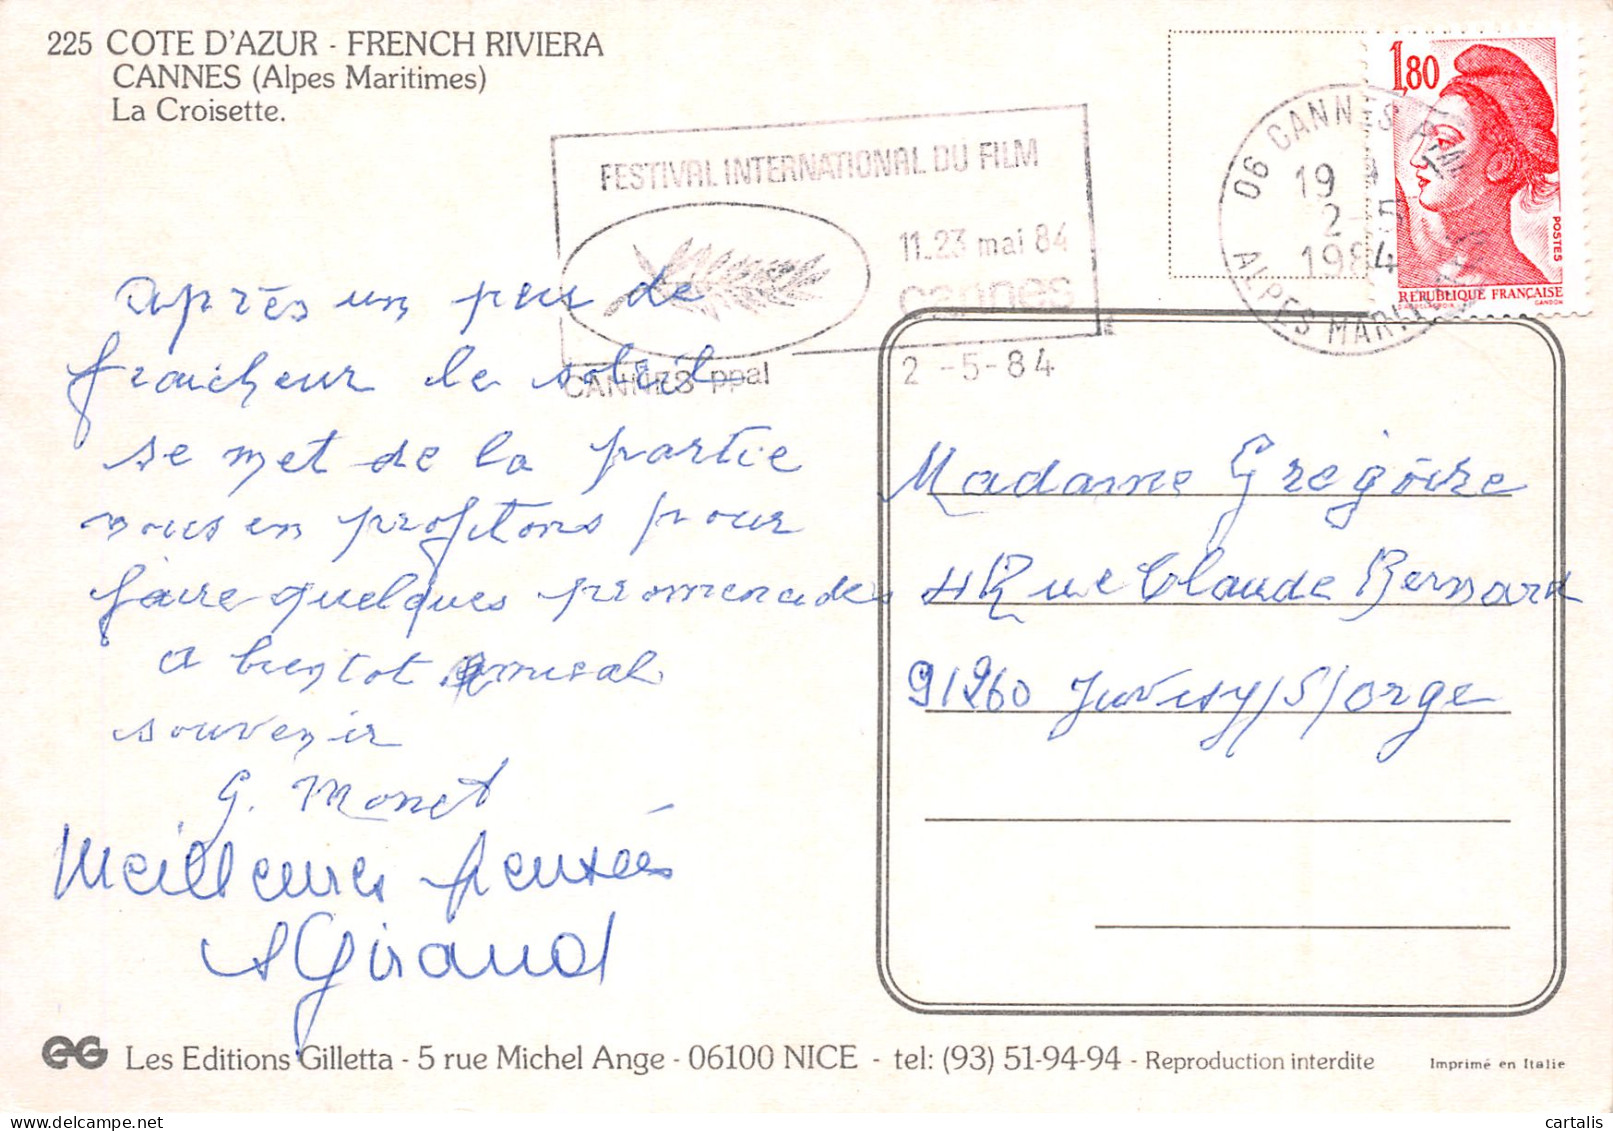 225 COTE D'AZUR - FRENCH RIVIERA
CANNES (Alpes Maritimes)
La Croisette.
FESTIVAL INTERNATIONAL DU FILM
11.23 mai 84
cannes
CANNES ppal
2 -5-84
06 CANNES
19
2 -5
1984
ALPES MARIT
1,80
POSTES
REPUBLIQUE FRANÇAISE
GANDON
après un peu de
fraicheur le soleil
se met de la partie
nous en profitons pour
faire quelques promenades
a bientot amical
souvenir
G. Monet
Meilleures pensées
Giraud
Madame Grégoire
4 Rue Claude Bernard
91260 Juvisy/S/orge
EG Les Editions Gilletta - 5 rue Michel Ange - 06100 NICE - tel: (93) 51-94-94 - Reproduction interdite
Imprimé en Italie
delcampe.net
cartalis